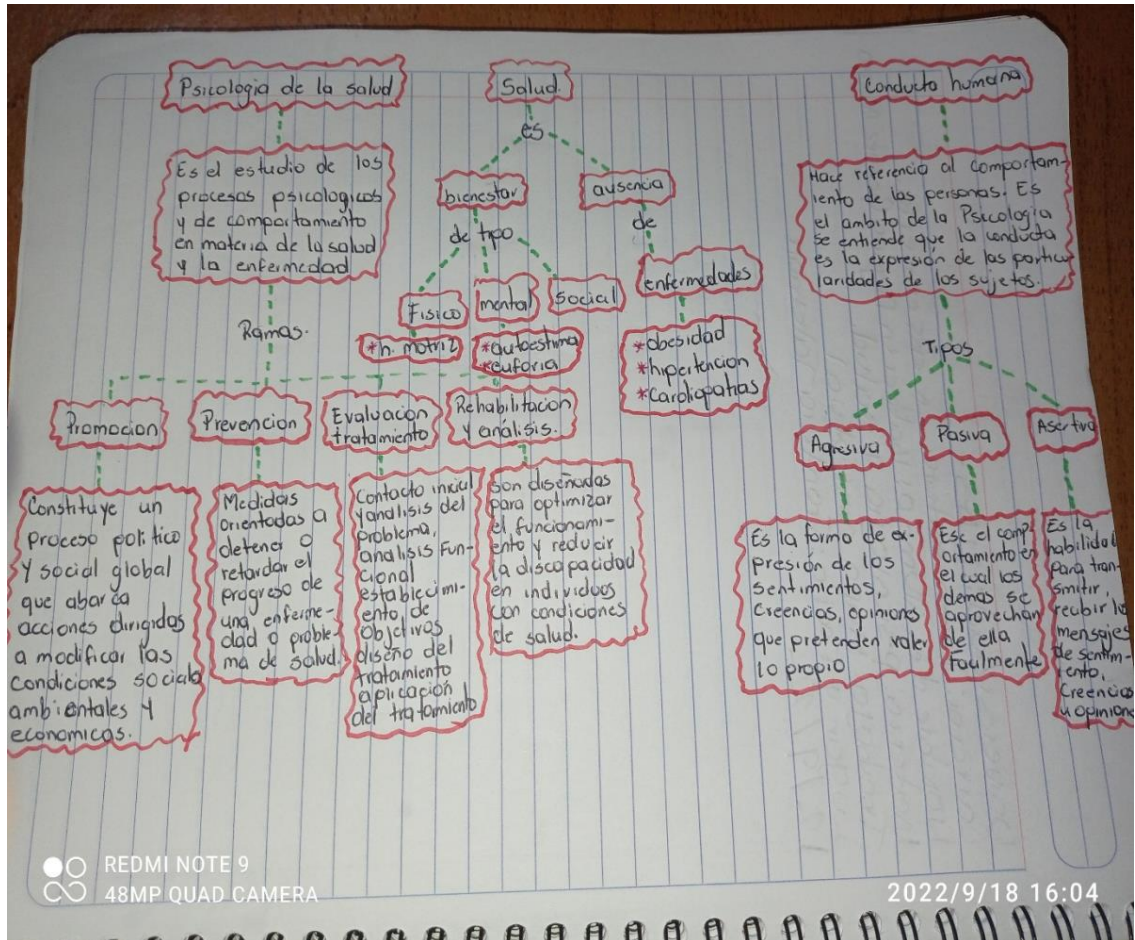 Psicologia de la salud
Es el estudio de los
procesos psicologicos
y de comportamiento
en materia de la salud
y la enfermedad
Ramas.
Promocion
Constituye un
proceso politico
y social global
que abarca
acciones dirigidas
a modificar las
condiciones sociales
ambientales y
economicas.
Prevencion
Medidas
orientadas a
detener o
retardar el
progreso de
una enferme-
dad o proble-
ma de salud.
Evaluacion
tratamiento
Contacto inicial
y analisis del
problema,
analisis Fun-
cional
establecimi-
ento de
objetivos
diseño del
tratamiento
aplicación
del tratamiento
Rehabilitacion
y analisis.
son diseñadas
para optimizar
el funcionami-
ento y reducir
la discapacidad
en individuos
con condiciones
de salud.
Salud.
es
bienestar
de tipo
Fisico
*h. motriz
mental
*autoestima
*euforia
social
ausencia
de
enfermedades
*obesidad
*hipertencion
*cardiopatias
Conducta humana
Hace referencia al comportam-
iento de las personas. Es
el ambito de la Psicologia
se entiende que la conducta
es la expresión de las particu
laridades de los sujetos.
Tipos
Agresiva
Es la forma de ex-
presión de los
sentimientos,
creencias, opiniones
que pretenden valer
lo propio
Pasiva
Ese el comp
ortamiento en
el cual los
demas se
aprovechan
de ella
facilmente
Asertiva
Es la
habilidad
para tran-
smitir,
recibir los
mensajes
de sentim-
iento,
creencias
u opiniones
REDMI NOTE 9
48MP QUAD CAMERA
2022/9/18 16:04